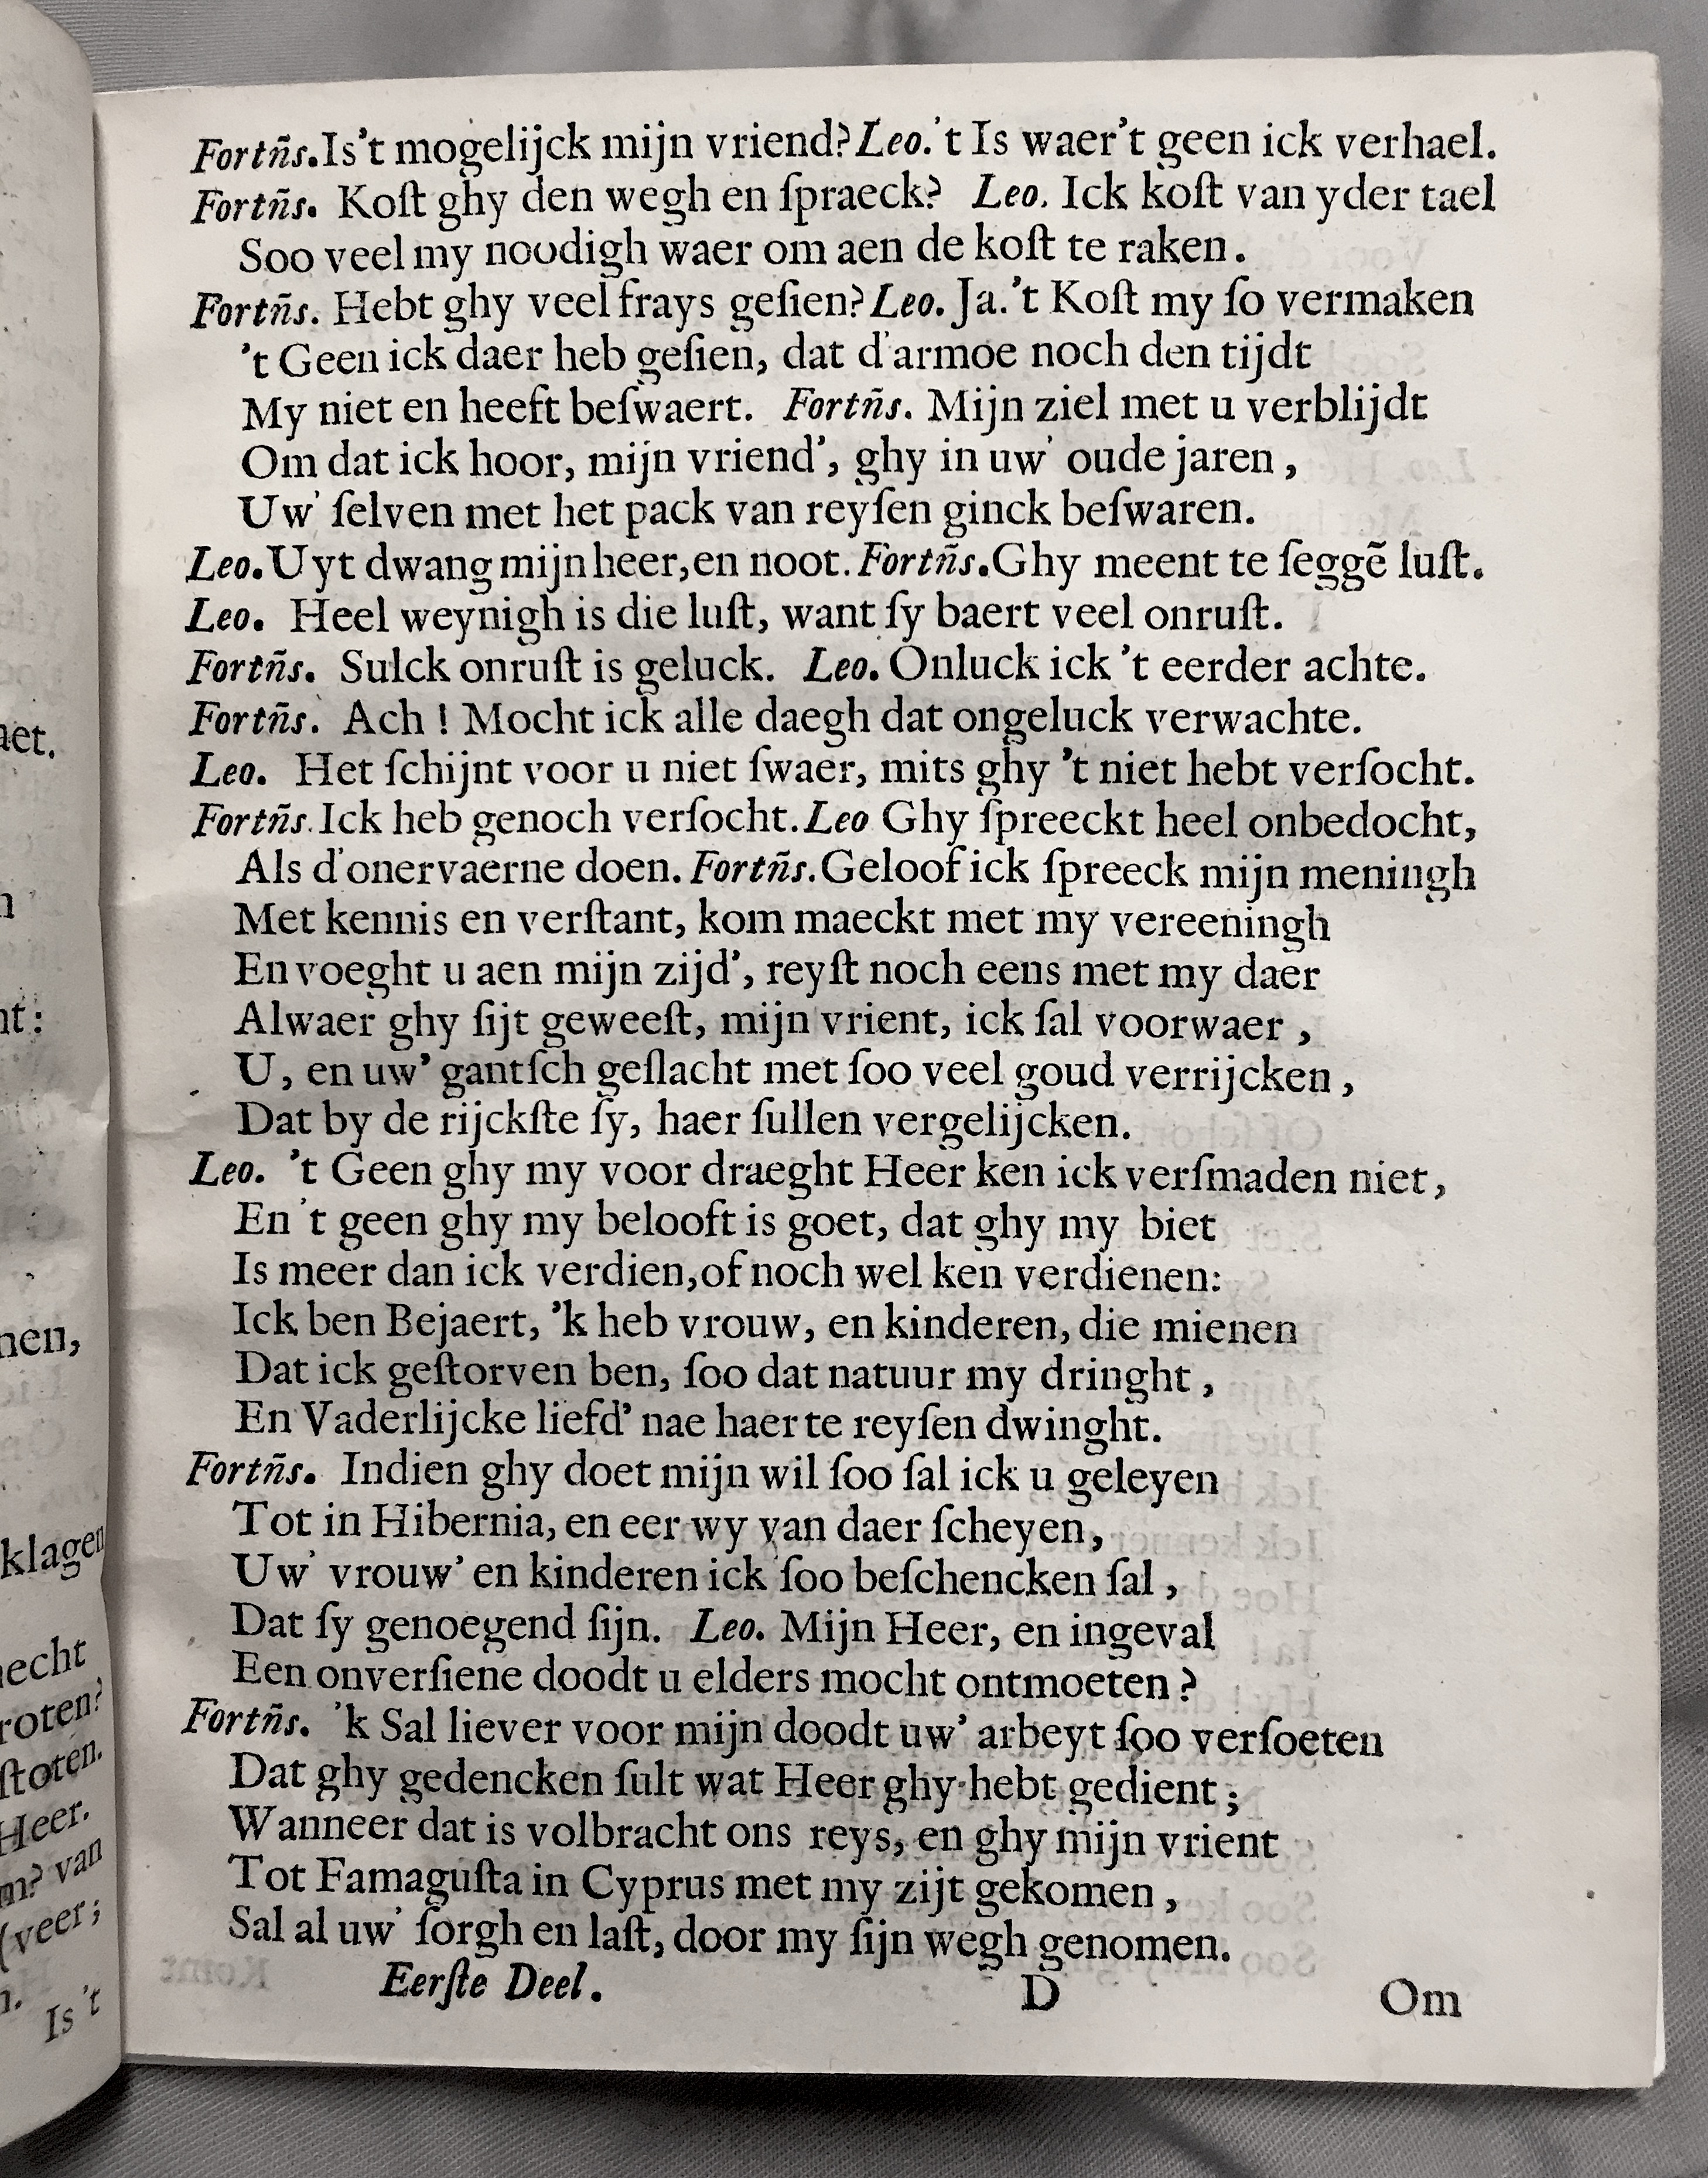 Fortñs. Is't mogelijck mijn vriend? Leo. 't Is waer't geen ick verhael.
Fortñs. Koſt ghy den wegh en ſpraeck? Leo. Ick koſt van yder tael
Soo veel my noodigh waer om aen de koſt te raken.
Fortñs. Hebt ghy veel frays geſien? Leo. Ja. 't Koſt my ſo vermaken
't Geen ick daer heb geſien, dat d'armoe noch den tijdt
My niet en heeft beſwaert. Fortñs. Mijn ziel met u verblijdt
Om dat ick hoor, mijn vriend', ghy in uw' oude jaren,
Uw' ſelven met het pack van reyſen ginck beſwaren.
Leo. Uyt dwang mijn heer, en noot. Fortñs. Ghy meent te ſeggẽ luſt.
Leo. Heel weynigh is die luſt, want ſy baert veel onruſt.
Fortñs. Sulck onruſt is geluck. Leo. Onluck ick 't eerder achte.
Fortñs. Ach! Mocht ick alle daegh dat ongeluck verwachte.
Leo. Het ſchijnt voor u niet ſwaer, mits ghy 't niet hebt verſocht.
Fortñs. Ick heb genoch verſocht. Leo Ghy ſpreeckt heel onbedocht,
Als d'onervaerne doen. Fortñs. Geloof ick ſpreeck mijn meningh
Met kennis en verſtant, kom maeckt met my vereeningh
En voeght u aen mijn zijd', reyſt noch eens met my daer
Alwaer ghy ſijt geweeſt, mijn vrient, ick ſal voorwaer,
U, en uw' gantſch geſlacht met ſoo veel goud verrijcken,
Dat by de rijckſte ſy, haer ſullen vergelijcken.
Leo. 't Geen ghy my voor draeght Heer ken ick verſmaden niet,
En 't geen ghy my belooft is goet, dat ghy my biet
Is meer dan ick verdien, of noch wel ken verdienen:
Ick ben Bejaert, 'k heb vrouw, en kinderen, die mienen
Dat ick geſtorven ben, ſoo dat natuur my dringht,
En Vaderlijcke liefd' nae haer te reyſen dwinght.
Fortñs. Indien ghy doet mijn wil ſoo ſal ick u geleyen
Tot in Hibernia, en eer wy van daer ſcheyen,
Uw' vrouw' en kinderen ick ſoo beſchencken ſal,
Dat ſy genoegend ſijn. Leo. Mijn Heer, en ingeval
Een onverſiene doodt u elders mocht ontmoeten?
Fortñs. 'k Sal liever voor mijn doodt uw' arbeyt ſoo verſoeten
Dat ghy gedencken ſult wat Heer ghy hebt gedient;
Wanneer dat is volbracht ons reys, en ghy mijn vrient
Tot Famaguſta in Cyprus met my zijt gekomen,
Sal al uw' ſorgh en laſt, door my ſijn wegh genomen.
Eerſte Deel. D Om
klagen
roten?
ſtoten.
Heer.
van
(veer;
Is 't